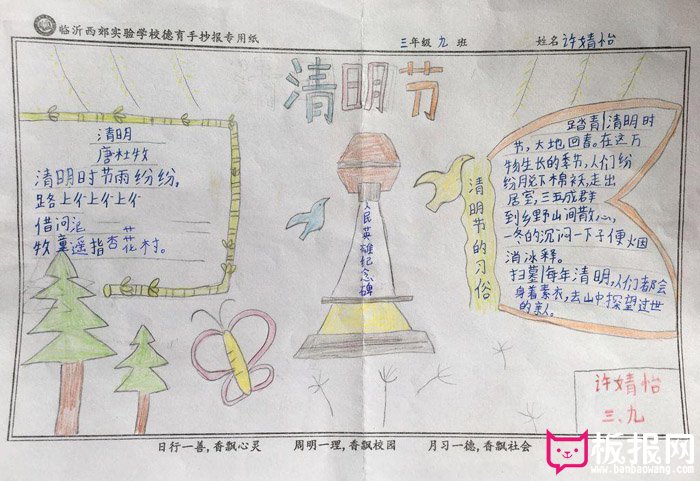 临沂西郊实验学校德育手抄报专用纸
三年级 九 班
姓名 许婧怡
清明节
清明
唐杜牧
清明时节雨纷纷,
路上个上个上个
借问
牧童遥指杏花村。
人民英雄纪念碑
清明节的习俗
踏青清明时
节,大地回春。在这万
物生长的季节,人们纷
纷脱下棉袄,走出
居室,三五成群
到乡野山间散心,
一冬的沉闷一下子便烟
消冰释。
扫墓每年清明,人们都会
身着素衣,去山中探望过世
的亲人。
许婧怡
三、九
日行一善,香飘心灵 周明一理,香飘校园 月习一德,香飘社会
板报网
www.banbaowang.com